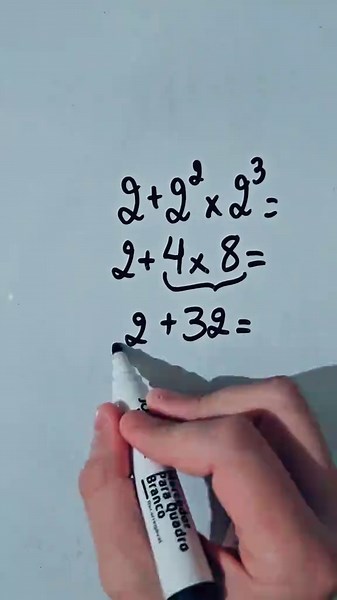 2+2²×2³=
2+4×8=
2+32=
Marcador
Para Quadro
Branco